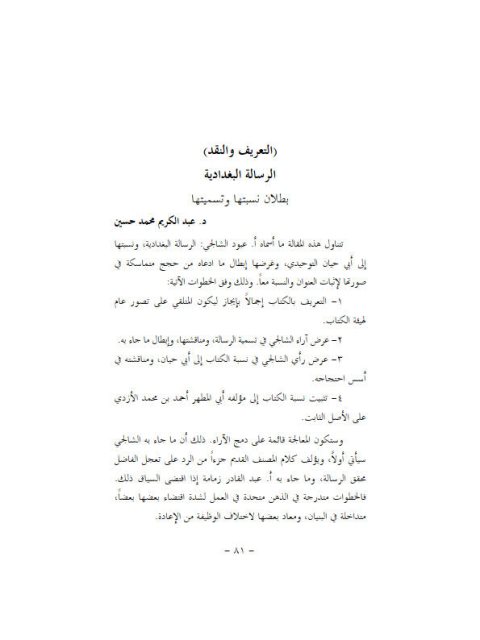 (التعريف والنقد)
الرسالة البغدادية
بطلان نسبتها وتسميتها
د. عبد الكريم محمد حسين
تتناول هذه المقالة ما أسماه أ. عبود الشالجي: الرسالة البغدادية، ونسبتها
إلى أبي حيان التوحيدي، وغرضها إبطال ما ادعاه من حجج متماسكة في
صورتها لإثبات العنوان والنسبة معاً. وذلك وفق الخطوات الآتية:
١- التعريف بالكتاب إجمالاً بإيجاز ليكون المتلقي على تصور عام
لهيئة الكتاب.
٢- عرض آراء الشالجي في تسمية الرسالة، ومناقشتها، وإبطال ما جاء به.
٣- عرض رأي الشالجي في نسبة الكتاب إلى أبي حيان، ومناقشته في
أسس احتجاجه.
٤- تثبيت نسبة الكتاب إلى مؤلفه أبي المطهر أحمد بن محمد الأزدي
على الأصل الثابت.
وستكون المعالجة قائمة على دمج الآراء. ذلك أن ما جاء به الشالجي
سيأتي أولاً، ويؤلف كلام المصنف القديم جزءاً من الرد على تعجل الفاضل
محقق الرسالة، وما جاء به أ. عبد القادر زمامة إذا اقتضى السياق ذلك.
فالخطوات متدرجة في الذهن متحدة في العمل لشدة اقتضاء بعضها بعضاً،
متداخلة في البنيان، ومعاد بعضها لاختلاف الوظيفة من الإعادة.
- ٨١ -